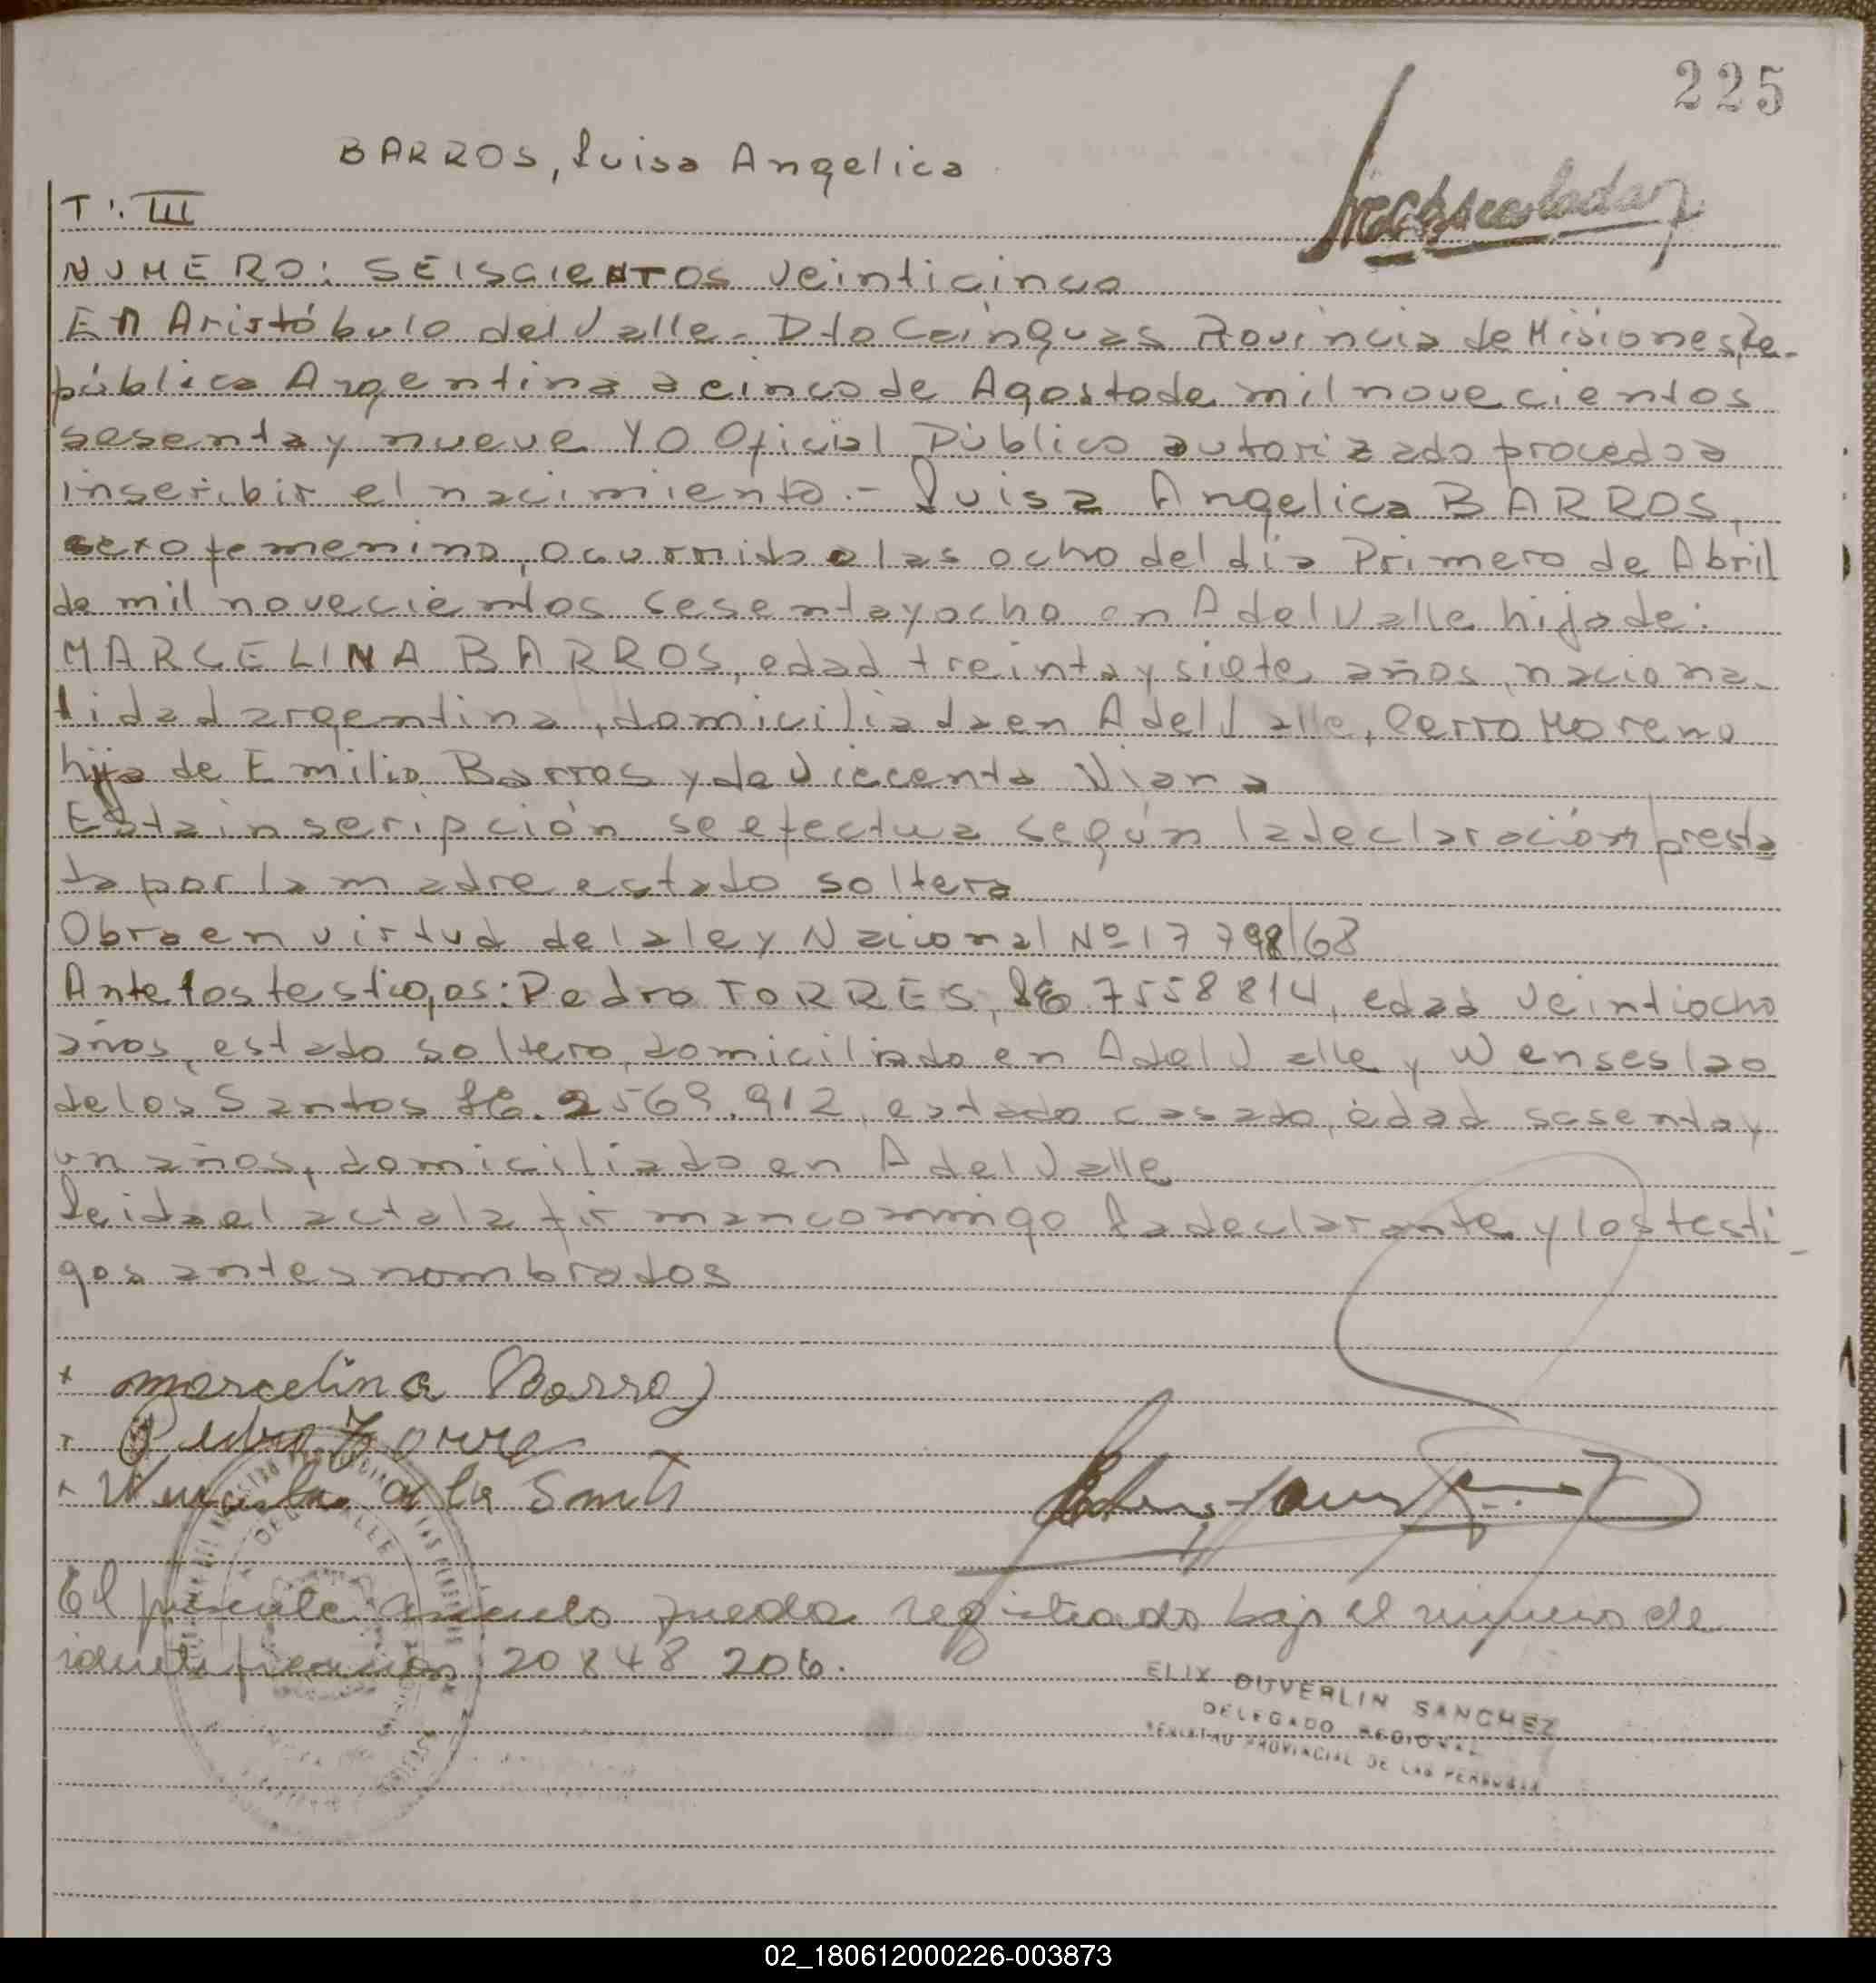 225
BARROS, Luisa Angelica
Tº: III
NUMERO: SEISCIENTOS Veinticinco
En Aristóbulo del Valle - Dto Cainguas Provincia de Misiones, Re-
pública Argentina a cinco de Agosto de mil novecientos
sesenta y nueve Yo Oficial Público autorizado procedo a
inscribir el nacimiento.- Luisa Angelica BARROS,
sexo femenino, ocurrido a las ocho del día Primero de Abril
de mil novecientos sesenta y ocho en A del Valle hija de:
MARCELINA BARROS, edad treinta y siete años, naciona-
lidad argentina, domiciliada en A del Valle, Cerro Moreno
hija de Emilio Barros y de Viecenta Viana
Esta inscripción se efectua según la declaración presta
da por la madre estado soltera
Obra en virtud de la ley Nacional Nº 17 798/68
Ante los testigos: Pedro TORRES, LE 7558814, edad veintiocho
años, estado soltero, domiciliado en A del Valle y Wenseslao
de los Santos LE. 2569.912, estado casado, edad sesenta y
un años, domiciliado en A del Valle
Leida el acta la firman conmigo La declarante y los testi-
gos antes nombrados
x Marcelina Barros
x Pedro Torre
x
El presente queda registrado bajo el número de
identificación 20 848 206.
ELIX DUVERLIN SANCHEZ
DELEGADO REGIONAL
PROVINCIAL DE LAS PERSONAS
DEL VALLE
02_180612000226-003873